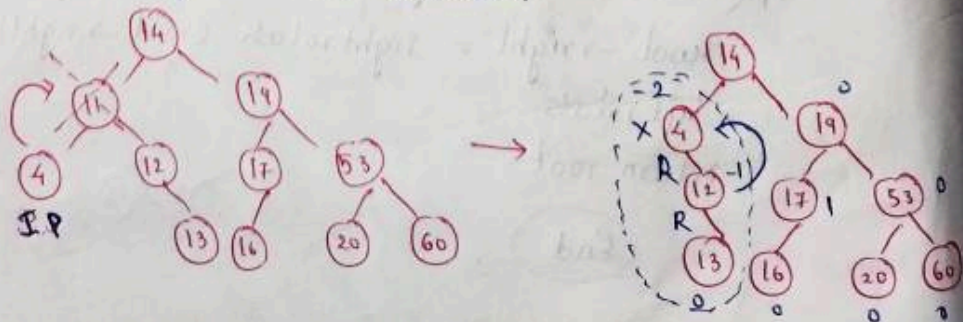 14
11 19
4 12 17 53
I.P
13 16 20 60
14
= 2 =
0
X 4 19
R 12 -1 17 1 53 0
R
13 16 20 60
0 0 0 0
End